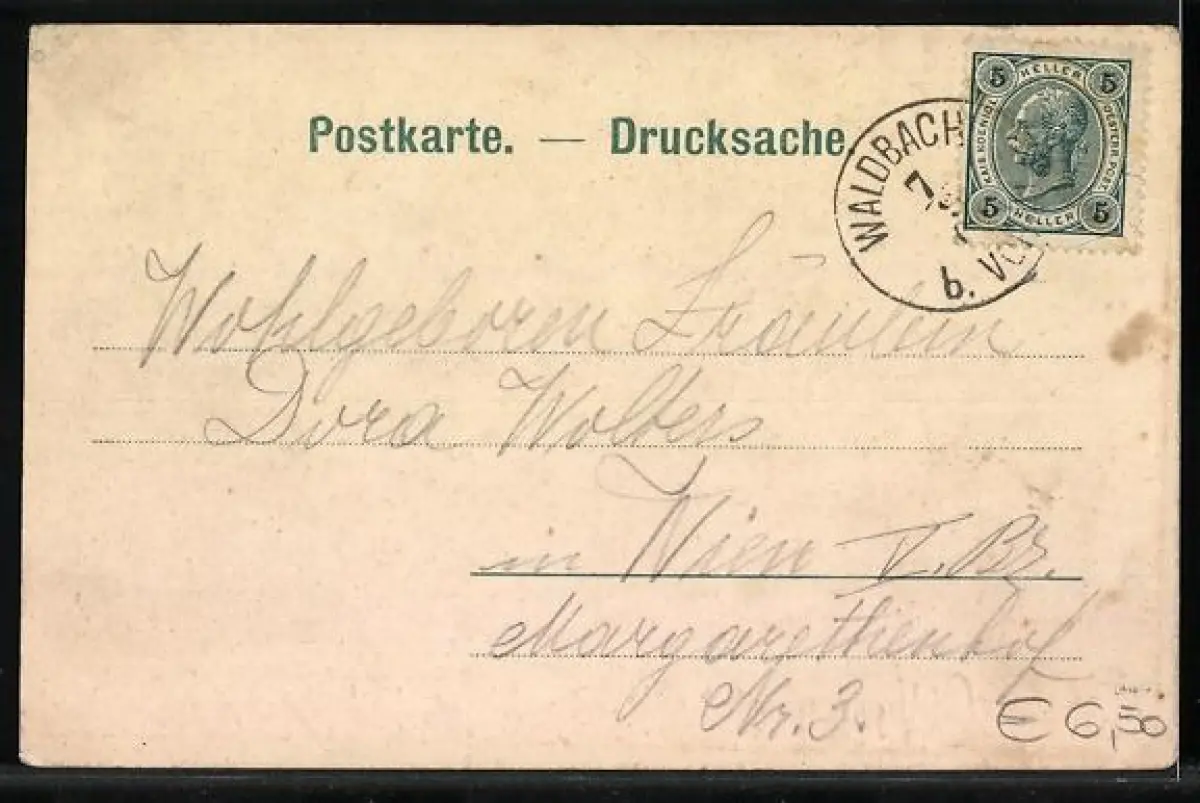 Postkarte. — Drucksache.
5 HELLER 5
5 HELLER 5
WALDBACH
7
b. VO
Wohlgeboren Fräulein
Dora Wolters
in Wien V. Bz.
Margarethenhof
Nr. 3.
€ 6,50